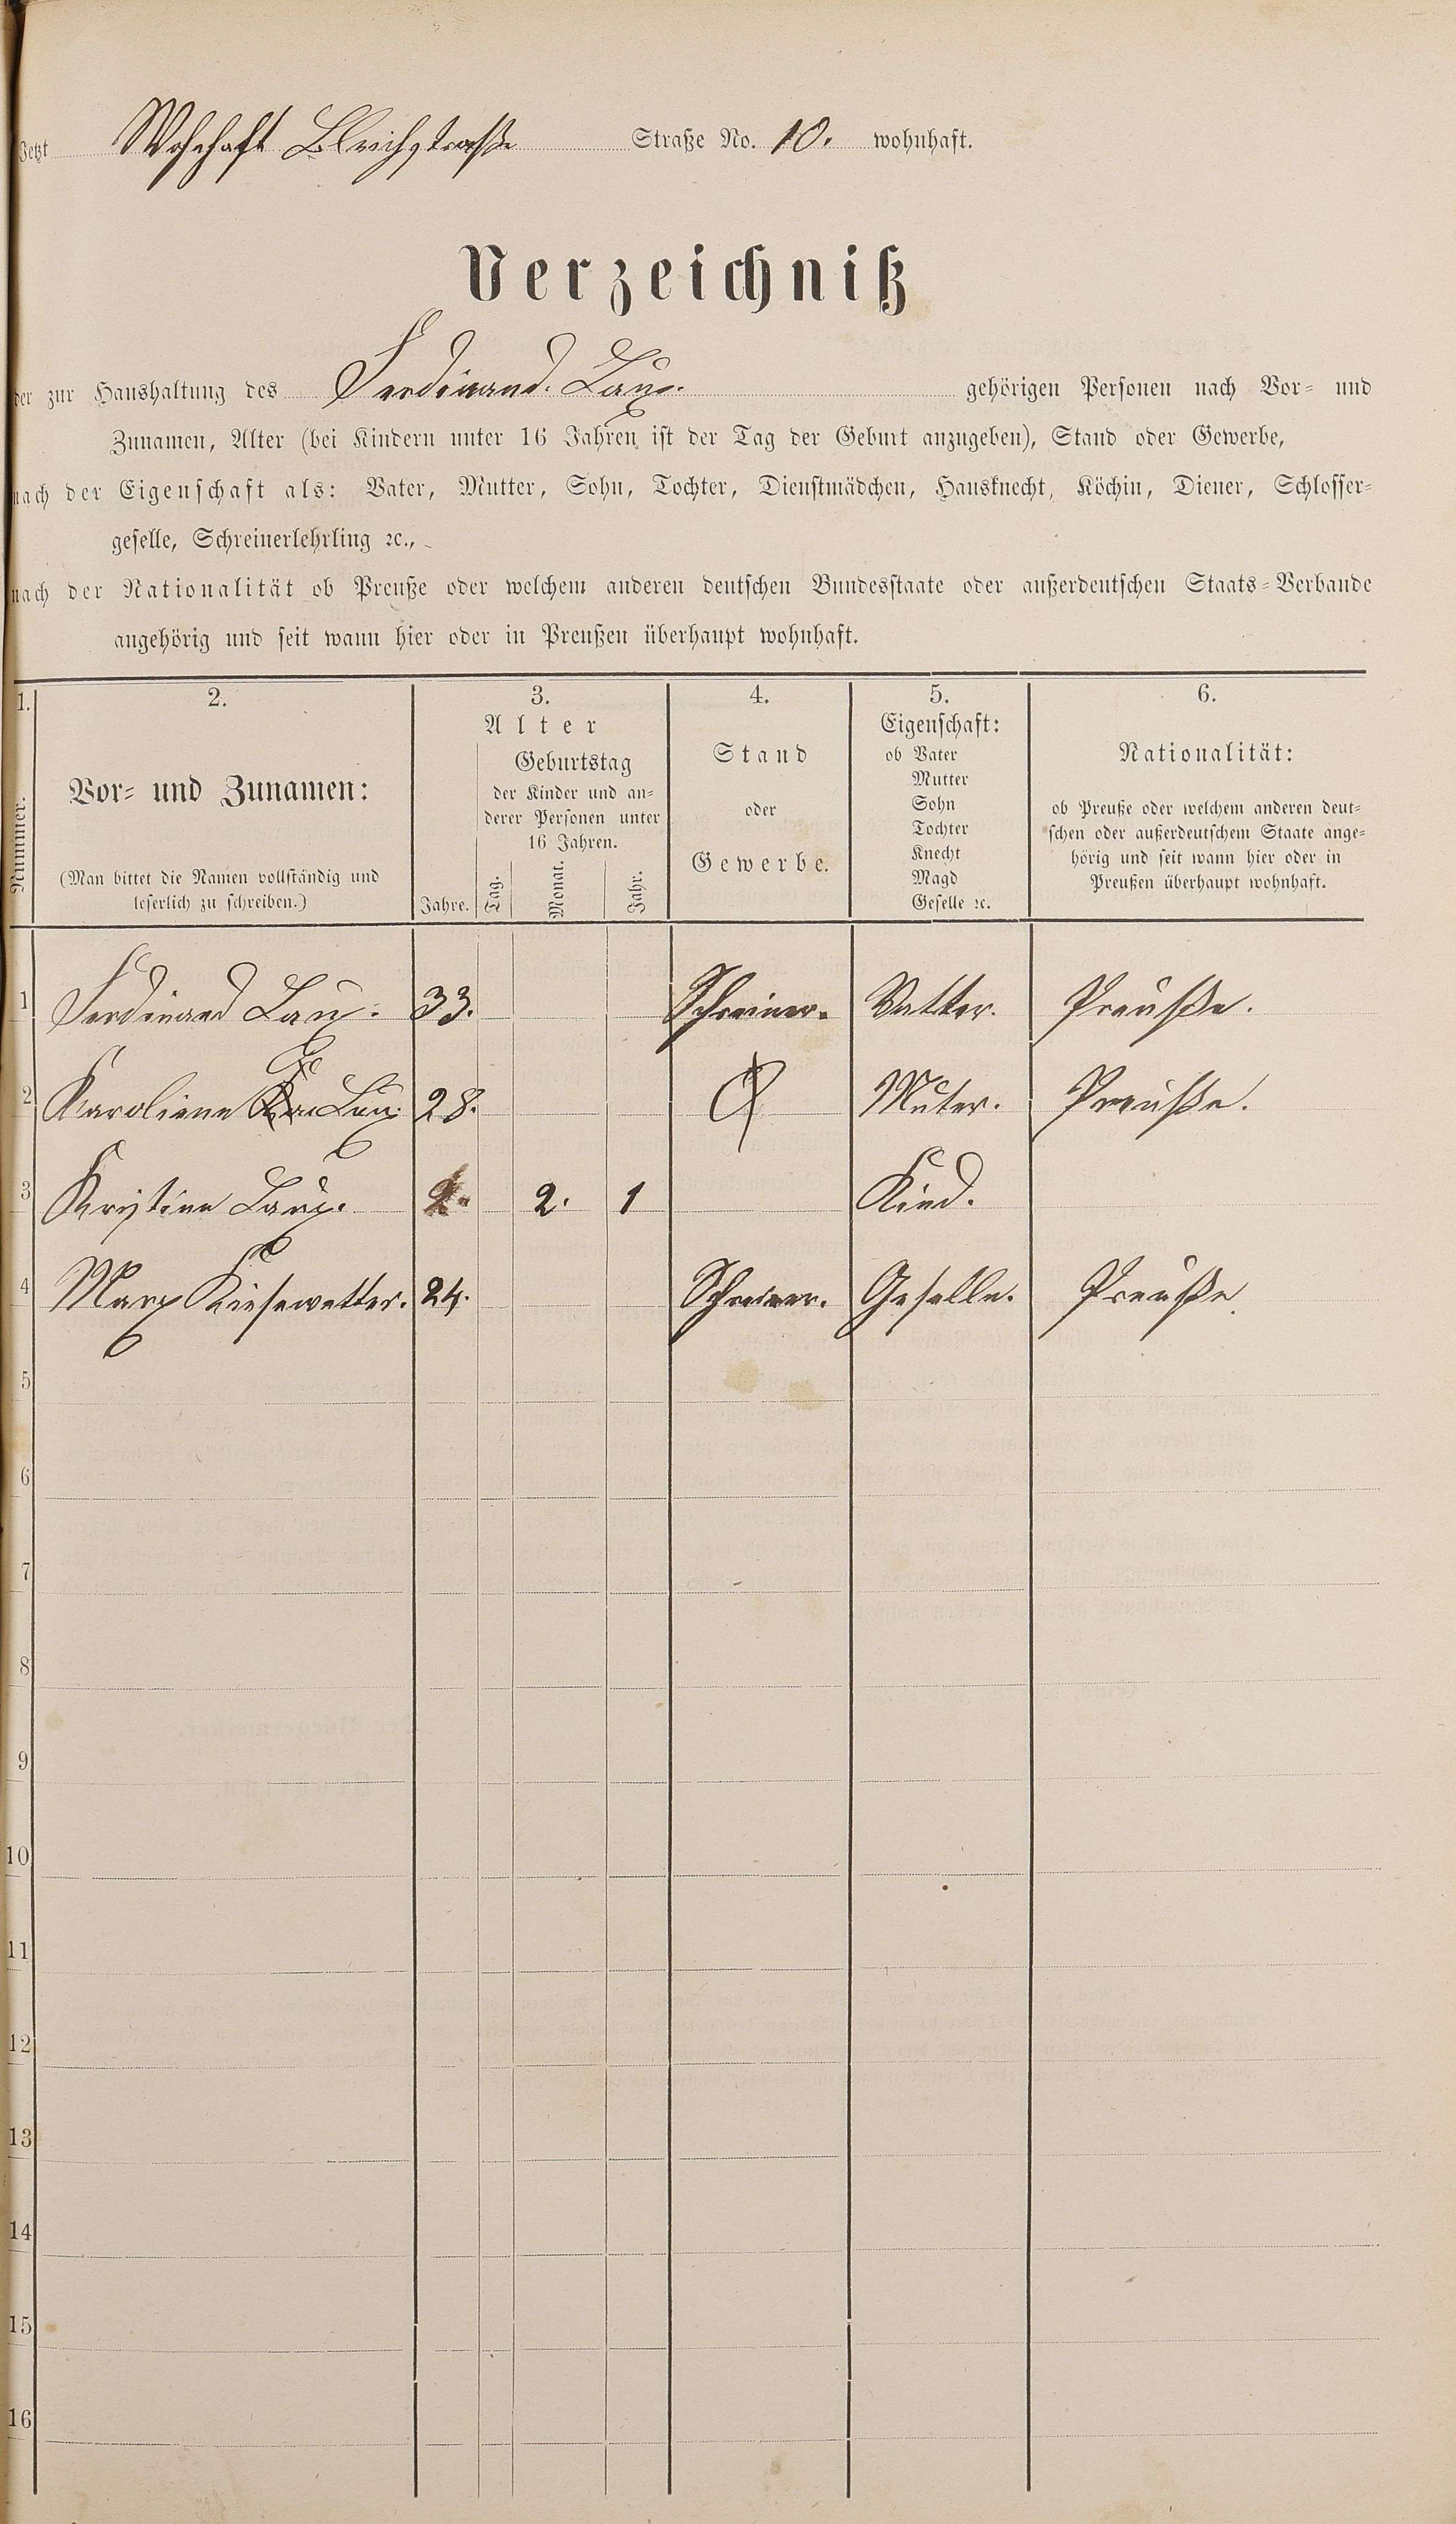 Jetzt Wohnhaft Bleichstraße Straße No. 10. wohnhaft.
Verzeichniß
der zur Haushaltung des Ferdinand. Laux. gehörigen Personen nach Vor- und
Zunamen, Alter (bei Kindern unter 16 Jahren ist der Tag der Geburt anzugeben), Stand oder Gewerbe,
nach der Eigenschaft als: Vater, Mutter, Sohn, Tochter, Dienstmädchen, Hausknecht, Köchin, Diener, Schlosser-
geselle, Schreinerlehrling ꝛc.,
nach der Nationalität ob Preuße oder welchem anderen deutschen Bundesstaate oder außerdeutschen Staats-Verbande
angehörig und seit wann hier oder in Preußen überhaupt wohnhaft.
1.
Nummer.
2.
Vor- und Zunamen:
(Man bittet die Namen vollständig und
leserlich zu schreiben.)
3.
Alter
Jahre.
Geburtstag
der Kinder und an-
derer Personen unter
16 Jahren.
Tag.
Monat.
Jahr.
4.
Stand
oder
Gewerbe.
5.
Eigenschaft:
ob Vater
Mutter
Sohn
Tochter
Knecht
Magd
Geselle ꝛc.
6.
Nationalität:
ob Preuße oder welchem anderen deut-
schen oder außerdeutschem Staate ange-
hörig und seit wann hier oder in
Preußen überhaupt wohnhaft.
1 Ferdinand Laux. 33. Schreiner. Vatter. Preuße.
2 Karoliene Laux. 28. Muter. Preuße.
3 Kristine Laux. 2. 2. 1 Kind.
4 Marx Kiesewetter. 24. Schreiner. Geselle. Preuße
5
6
7
8
9
10
11
12
13
14
15
16